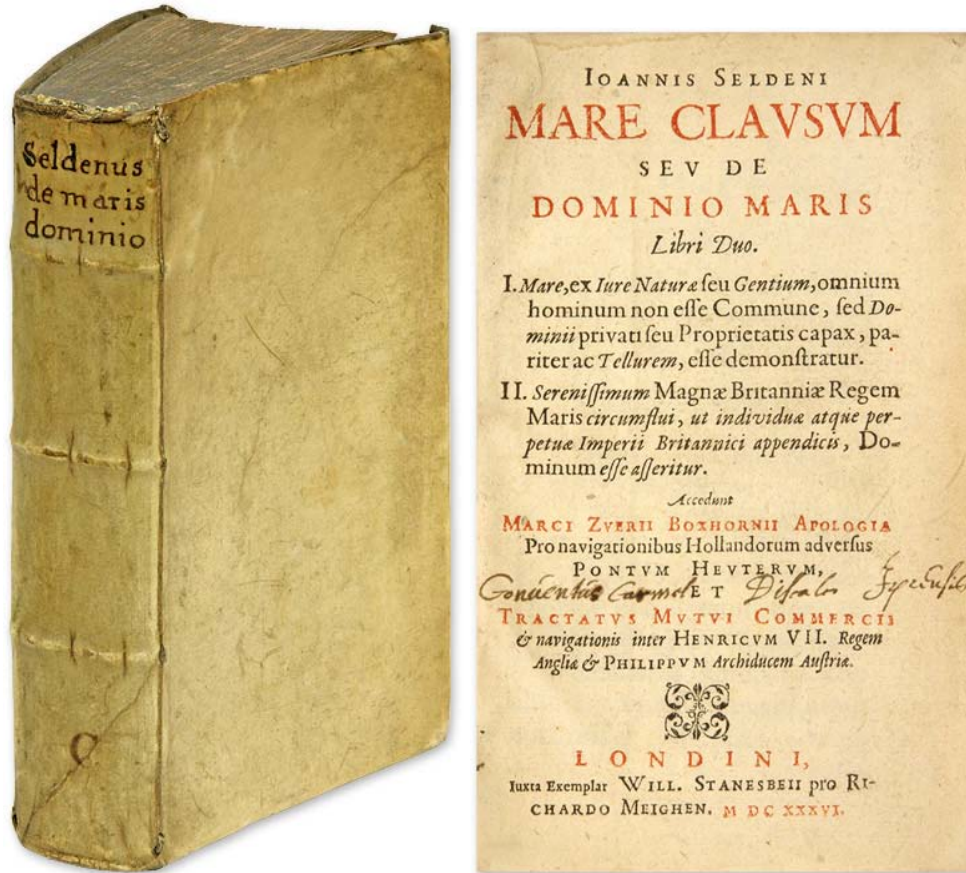 Seldenus
de maris
dominio
C
IOANNIS SELDENI
MARE CLAVSVM
SEV DE
DOMINIO MARIS
Libri Duo.
I. Mare, ex Iure Naturæ ſeu Gentium, omnium
hominum non eſſe Commune, ſed Do-
minii privati ſeu Proprietatis capax, pa-
riter ac Tellurem, eſſe demonſtratur.
II. Sereniſſimum Magnæ Britanniæ Regem
Maris circumflui, ut individuæ atque per-
petuæ Imperii Britannici appendicis, Do-
minum eſſe aſſeritur.
Accedunt
MARCI ZVERII BOXHORNII APOLOGIA
Pro navigationibus Hollandorum adverſus
PONTVM HEVTERVM,
Conuentus Carmel ET Discalc
TRACTATVS MVTVI COMMERCII
& navigationis inter HENRICVM VII. Regem
Angliæ & PHILIPPVM Archiducem Auſtriæ.
LONDINI,
Iuxta Exemplar WILL. STANESBEII pro RI-
CHARDO MEIGHEN. M DC XXXVI.